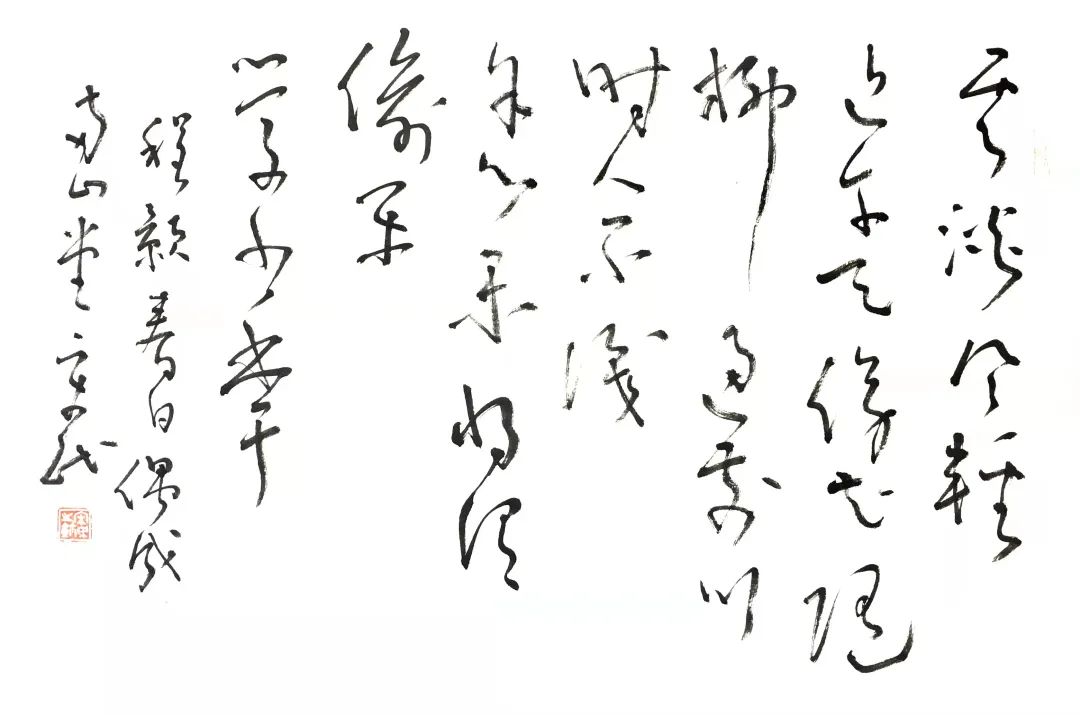 云淡风輕
近午天傍花随
柳过前川
时人不識
余心乐将谓
偷闲
学少年
程颢春日偶成
山堂